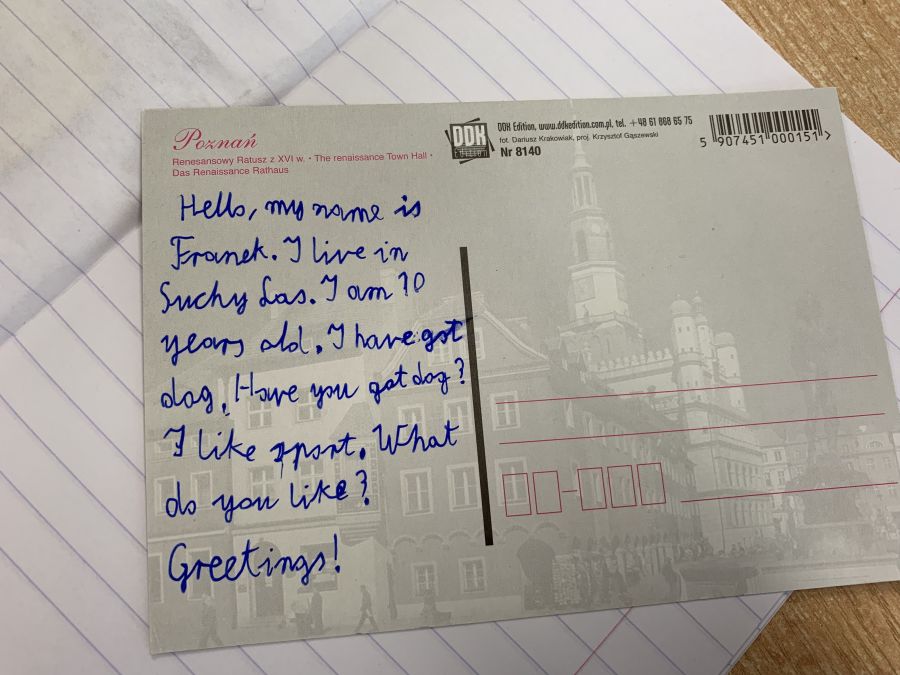 Poznań
Renesansowy Ratusz z XVI w. • The renaissance Town Hall •
Das Renaissance Rathaus
DDK
DDK Edition, www.ddkedition.com.pl, tel. +48 61 868 65 75
fot. Dariusz Krakowiak, proj. Krzysztof Gąszewski
Nr 8140
5 907451 000151 >
Hello, my name is
Franek. I live in
Suchy Las. I am 10
years old. I have got
dog. Have you got dog?
I like sport. What
do you like?
Greetings!